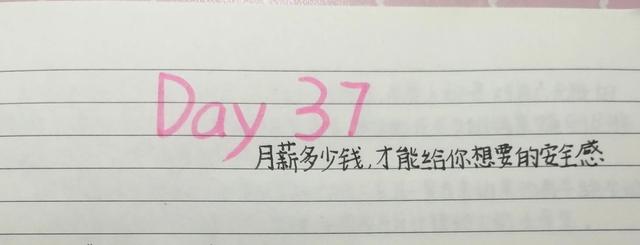 Day 37
月薪多少钱,才能给你想要的安全感